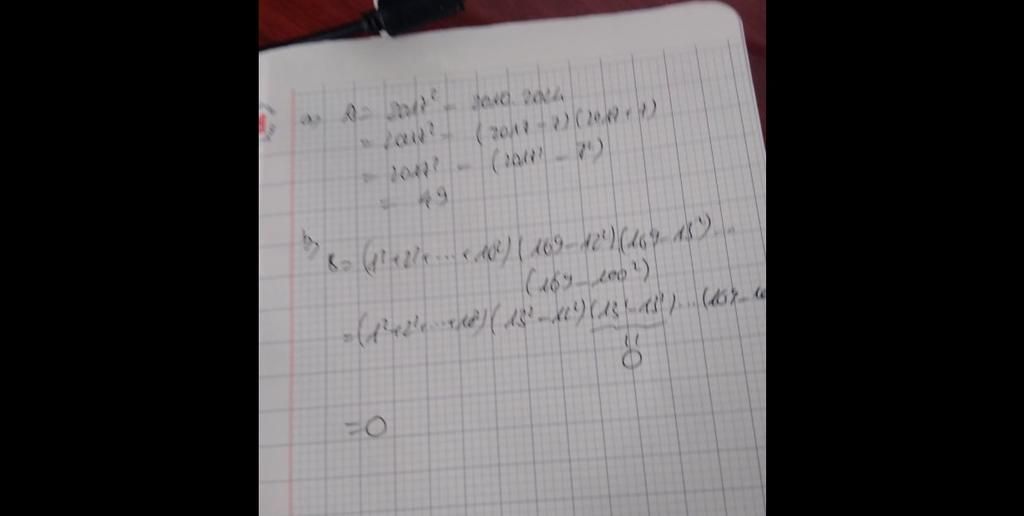 a) A = 2017² - 2010.2024
= 2017² - (2017-7)(2017+7)
= 2017² - (2017² - 7²)
= 49
b) B = (1²+2²+...+10²)(169-12²)(169-13²)...
(169-100²)
= (1²+2²+...+10²)(13²-12²)(13²-13²)...(169-10
0
= 0